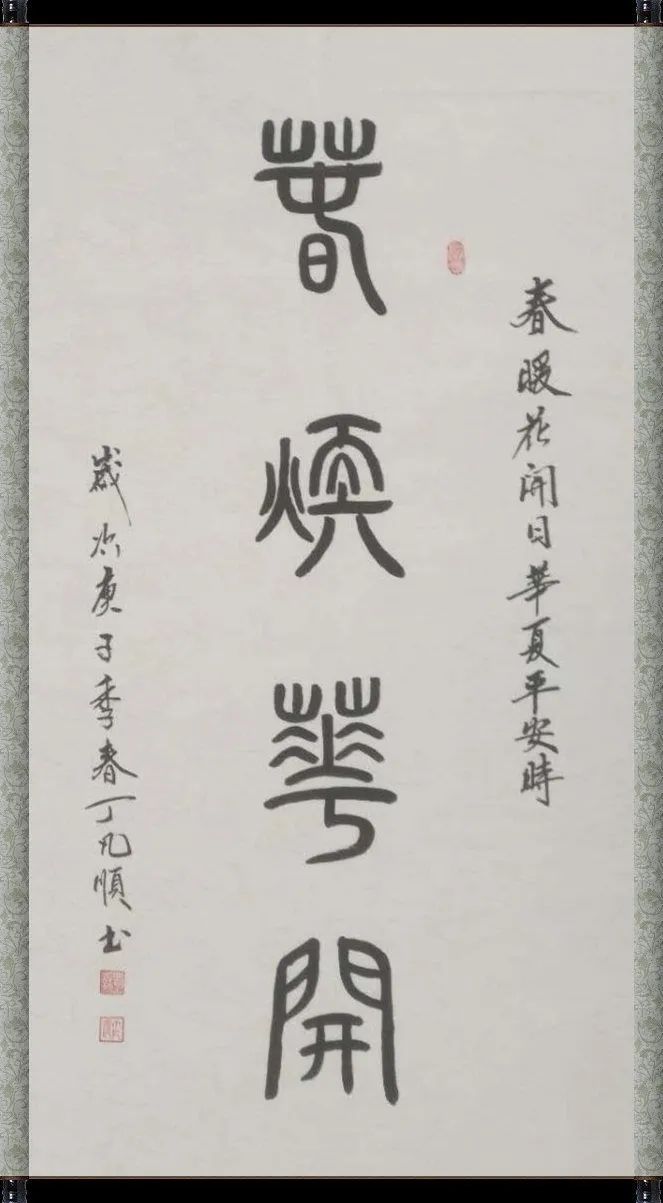 春暖花開日華夏平安時
萅煗華開
歲次庚子季春丁凡順书